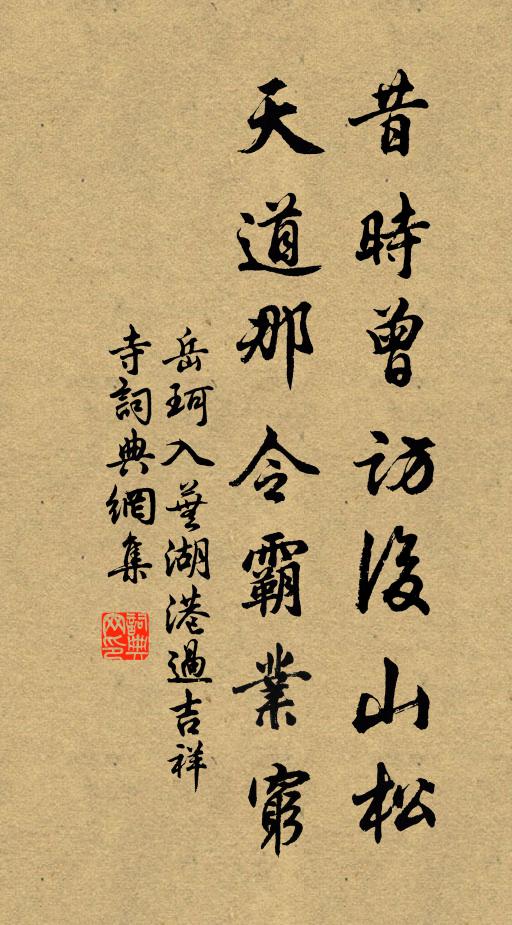 昔時曾訪後山松
天道那令霸業窮
岳珂入蕪湖港過吉祥
寺詞典網集
詞典
网印